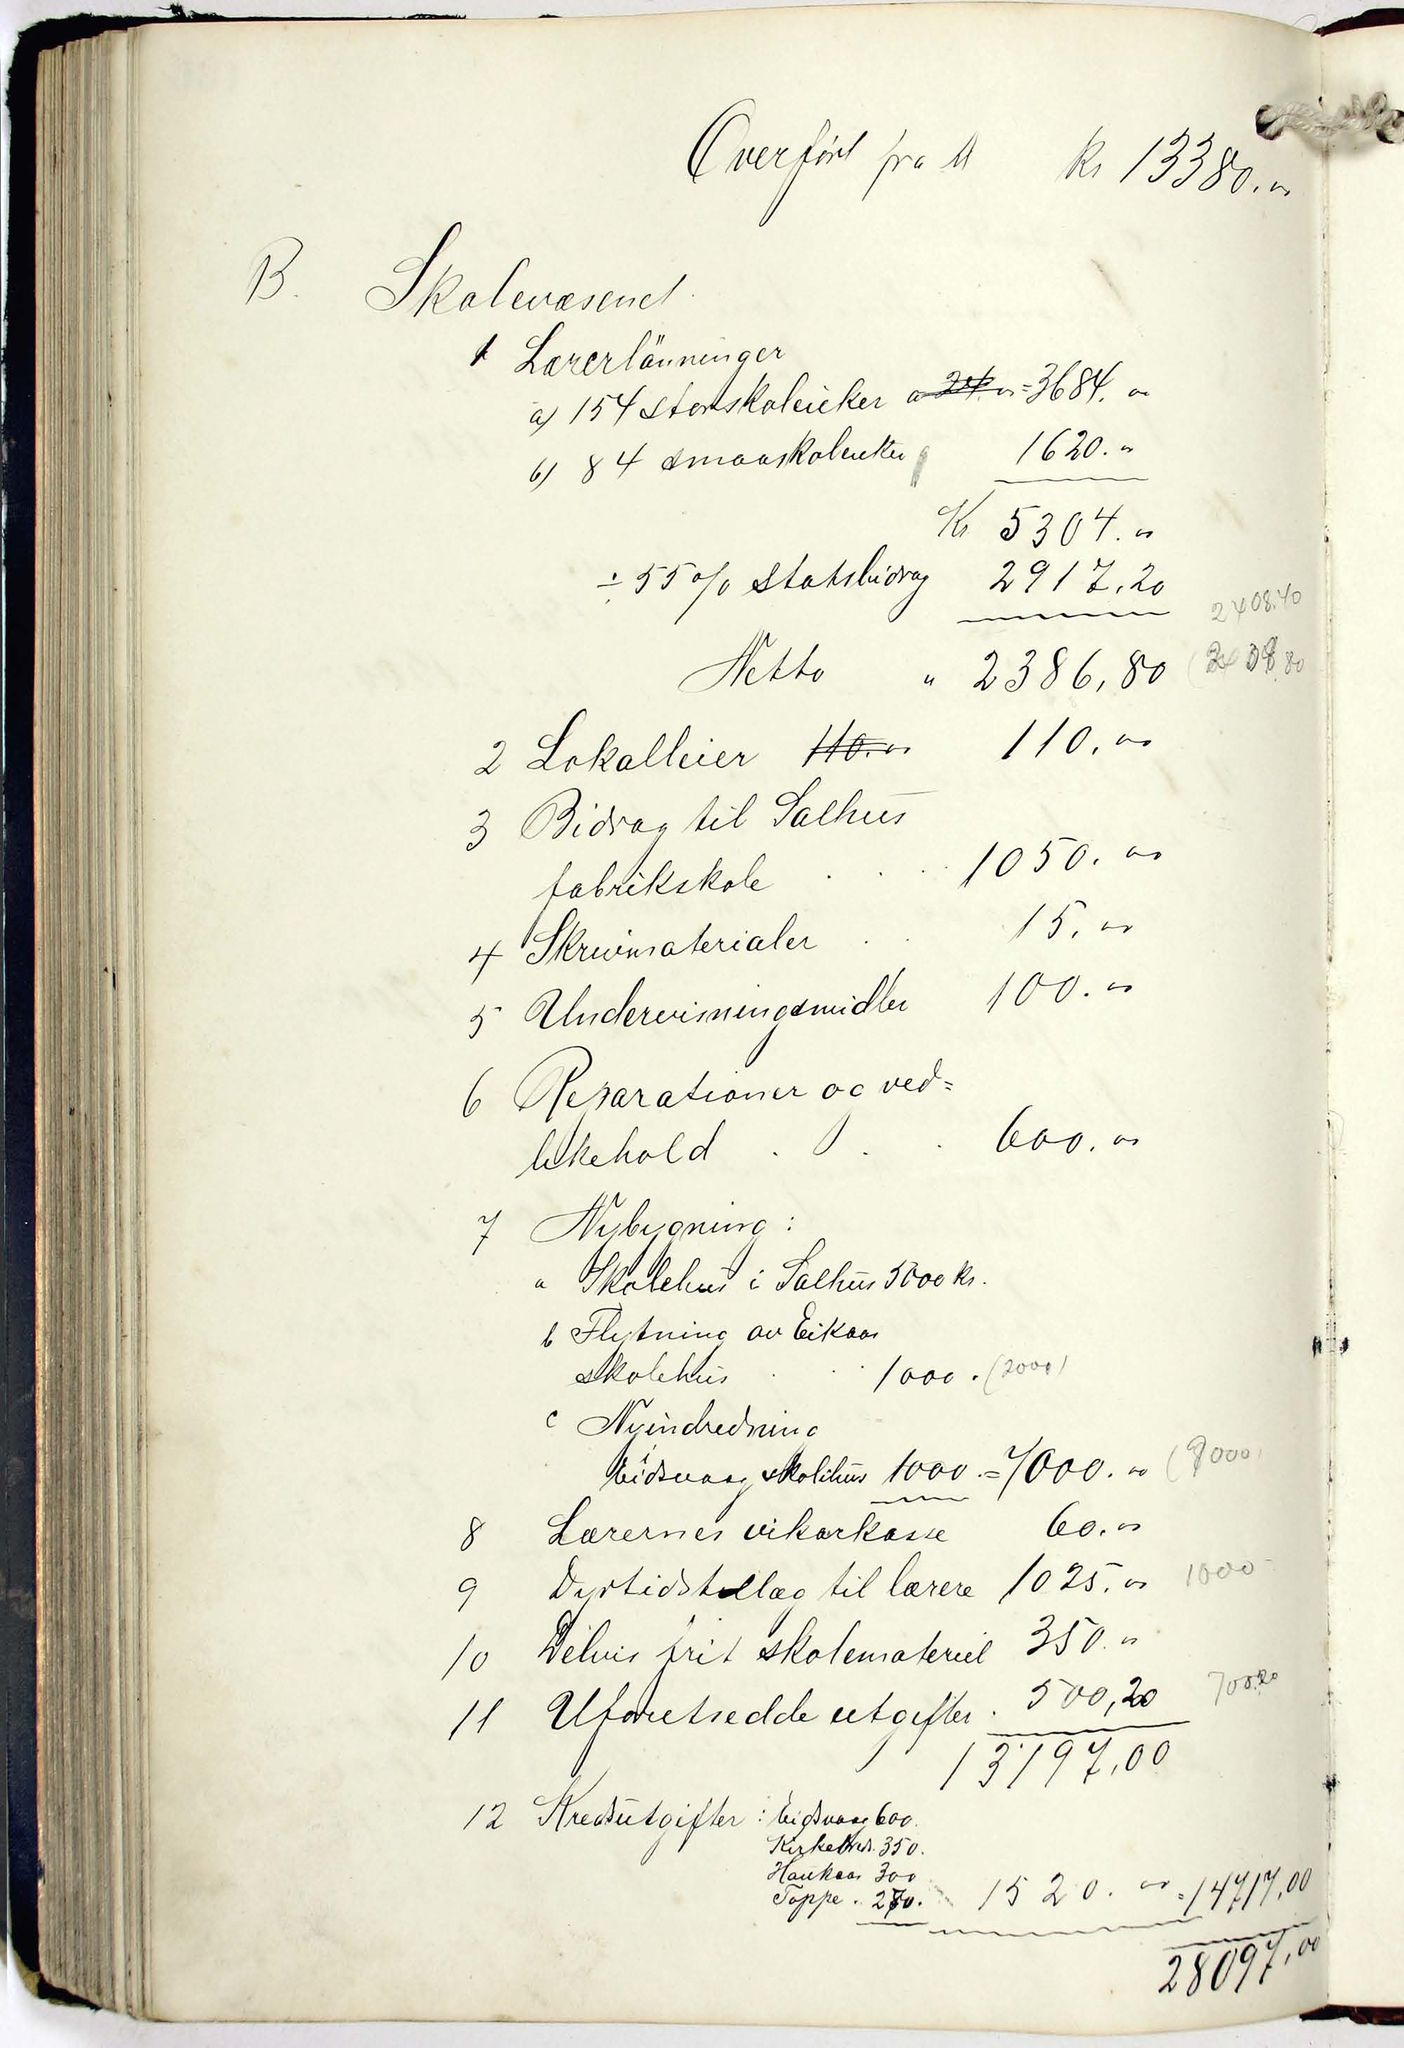 Overført fra A Kr 13380.00
B. Skolevæsenet.
1 Lærerlönninger
a) 154 storskoleuker a 24.00 = 3684.00
b) 84 smaaskoleuker 1620.00
Kr 5304.00
÷ 55 o/o statsbidrag 2917,20
2408.40
Netto " 2386,80
2 Lokalleier 110.00 110.00
3 Bidrag til Salhus
fabrikskole . . . 1050.00
4 Skrivmaterialer . . 15.00
5 Undervisningsmidler 100.00
6 Reparationer og ved=
likehold . . . 600.00
7 Nybygning:
a Skolehus i Salhus 5000 kr.
b Flytning av Eikaas
skolehus . . 1000. (2000)
c Nyindredning
Eidsvaag skolehus 1000. = 7000.00 (8000)
8 Lærernes vikarkasse 60.00
9 Dyrtidstillæg til lærere 1025.00 1000
10 Delvis frit skolemateriel 350.00
11 Uforutsedde utgifter . 500,20 700.20
13197,00
12 Kredsutgifter: Eidsvaag 600.
Kirkekreds. 350.
Haukaas 300
Toppe . 270. 1520.00 = 14717,00
28097,00